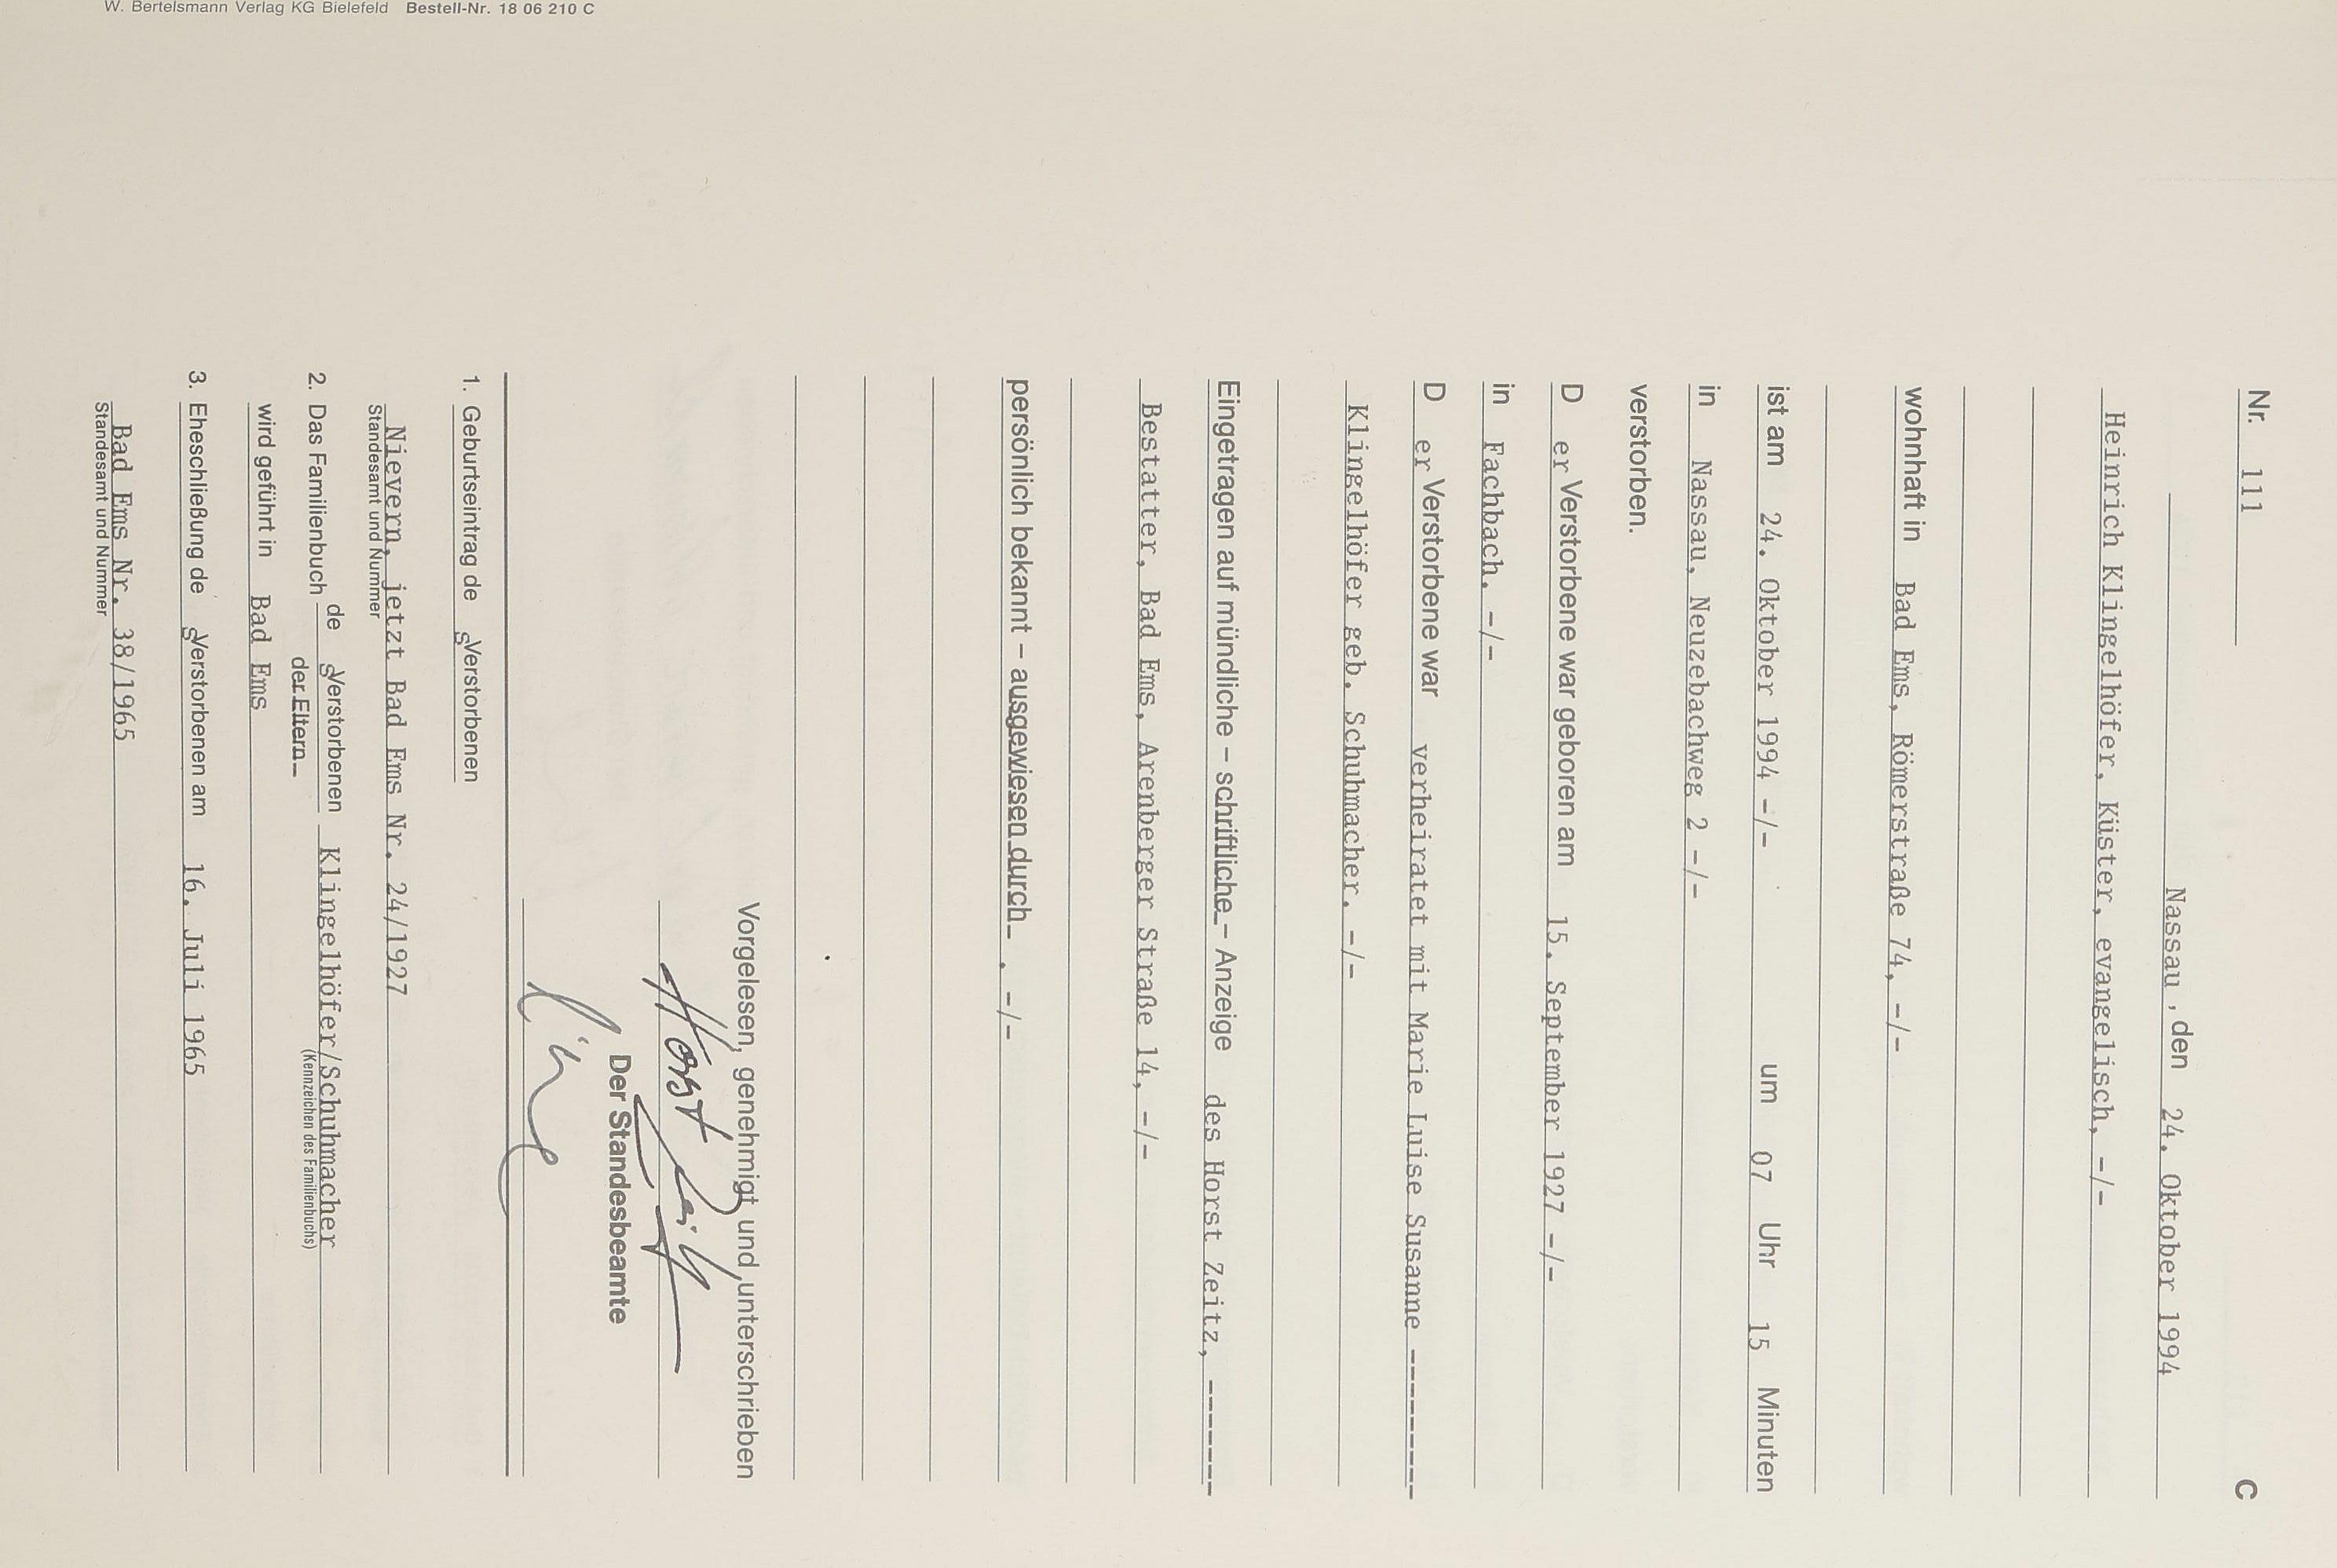 Nr. 111 C
Nassau, den 24. Oktober 1994
Heinrich Klingelhöfer, Küster, evangelisch, -/-
wohnhaft in Bad Ems, Römerstraße 74, -/-
ist am 24. Oktober 1994 -/- um 07 Uhr 15 Minuten
in Nassau, Neuzebachweg 2 -/-
verstorben.
D er Verstorbene war geboren am 15. September 1927 -/-
in Fachbach. -/-
D er Verstorbene war verheiratet mit Marie Luise Susanne --------
Klingelhöfer geb. Schuhmacher. -/-
Eingetragen auf mündliche – schriftliche – Anzeige des Horst Zeitz, ------
Bestatter, Bad Ems, Arenberger Straße 14, -/-
persönlich bekannt – ausgewiesen durch . -/-
Vorgelesen, genehmigt und unterschrieben
Horst Zeitz
Der Standesbeamte
1. Geburtseintrag de s Verstorbenen
Nievern, jetzt Bad Ems Nr. 24/1927
Standesamt und Nummer
2. Das Familienbuch de s Verstorbenen Klingelhöfer/Schuhmacher
der Eltern (Kennzeichen des Familienbuchs)
wird geführt in Bad Ems
3. Eheschließung de s Verstorbenen am 16. Juli 1965
Bad Ems Nr. 38/1965
Standesamt und Nummer
W. Bertelsmann Verlag KG Bielefeld Bestell-Nr. 18 06 210 C